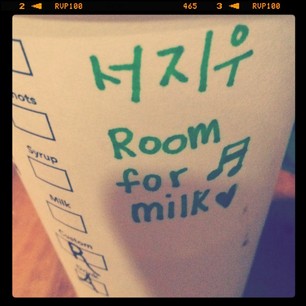 2 RVP100 465 3 RVP100
서지우
Room
for
milk
hots
Syrup
Milk
Custom